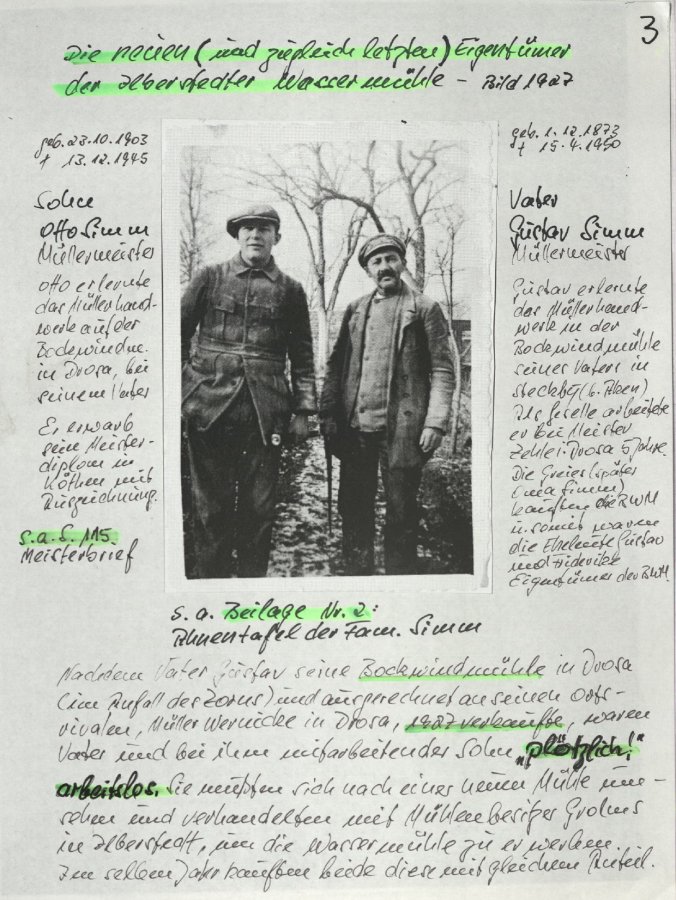 3
Die neuen (und zugleich letzten) Eigentümer
der Ilberstedter Wassermühle – Bild 1927
geb. 23.10.1903
† 13.12.1945
Sohn
Otto Simm
Müllermeister
Otto erlernte
das Müllerhand-
werk auf der
Bockwindm.
in Drosa, bei
seinem Vater
Er erwarb
sein Meister-
diplom in
Köthen mit
Auszeichnung.
s.a.S. 115.
Meisterbrief
geb. 1.12.1873
† 15.4.1950
Vater
Gustav Simm
Müllermeister
Gustav erlernte
das Müllerhand-
werk in der
Bockwindmühle
seines Vaters in
Steckby
Als Geselle arbeitete
er bei Meister
Drosa 5 Jahre.
Die (später
Simm)
kauften die BWM
u. somit waren
die Eheleute Gustav
und
Eigentümer der BWM.
s. a. Beilage Nr. 2:
Ahnentafel der Fam. Simm
Nachdem Vater Gustav seine Bockwindmühle in Drosa
(im Anfall des Zorns) und ausgerechnet an seinen Orts-
rivalen, Müller Wernicke in Drosa, 1927 verkaufte, waren
Vater und bei ihm mitarbeitender Sohn "plötzlich!"
arbeitslos. Sie mußten sich nach einer neuen Mühle um-
sehen und verhandelten mit Mühlenbesitzer Grohms
in Ilberstedt, um die Wassermühle zu erwerben.
Im selben Jahr kauften beide diese mit gleichem Anteil.